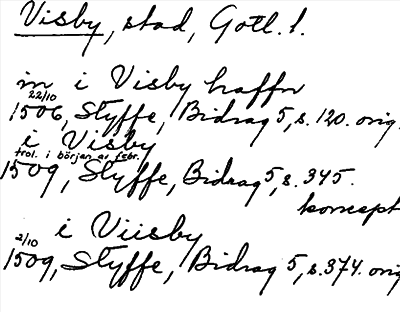 Visby, stad, Gotl. l.
in i Visby haffn
22/10
1506, Styffe, Bidrag 5, s. 120. orig.
i Visby
trol. i början av febr.
1509, Styffe, Bidrag 5, s. 345.
koncept
i Viisby
2/10
1509, Styffe, Bidrag 5, s. 374. orig